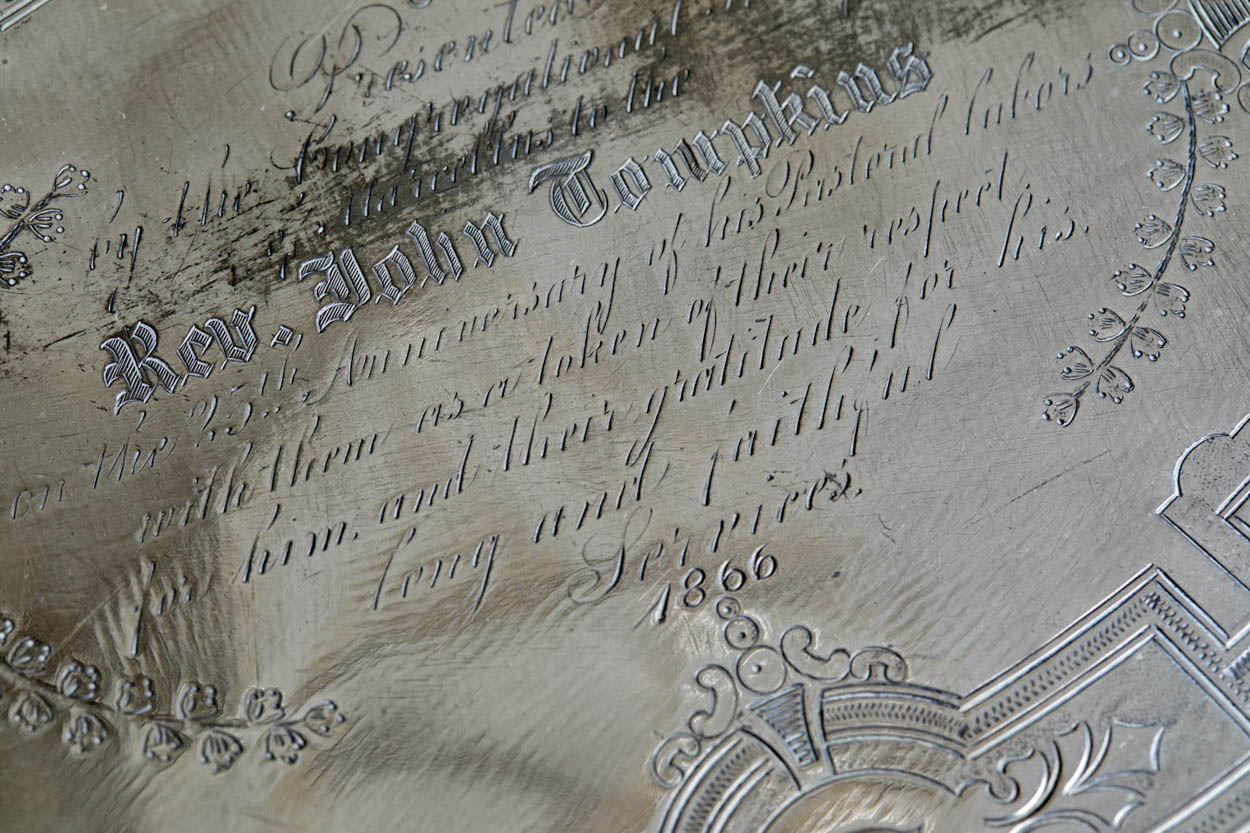 Presented
by the Congregational
to the
Rev. John Tompkins
on the 25th Anniversary of his Pastoral labors
with them as a token of their respect
for him. and their gratitude for his.
long and, faithful
Services.
1866